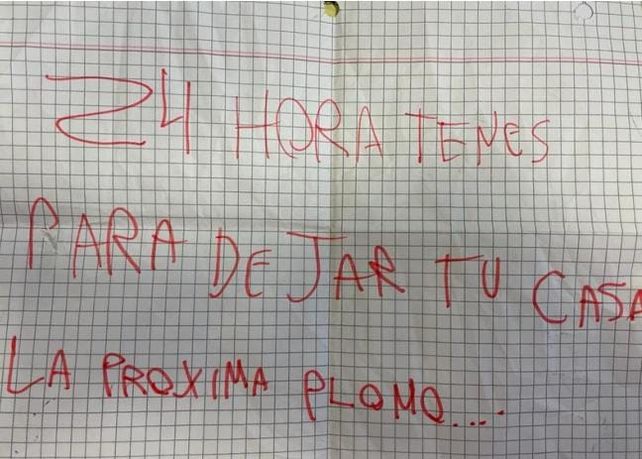 24 HORA TENES
PARA DEJAR TU CASA
LA PROXIMA PLOMO....